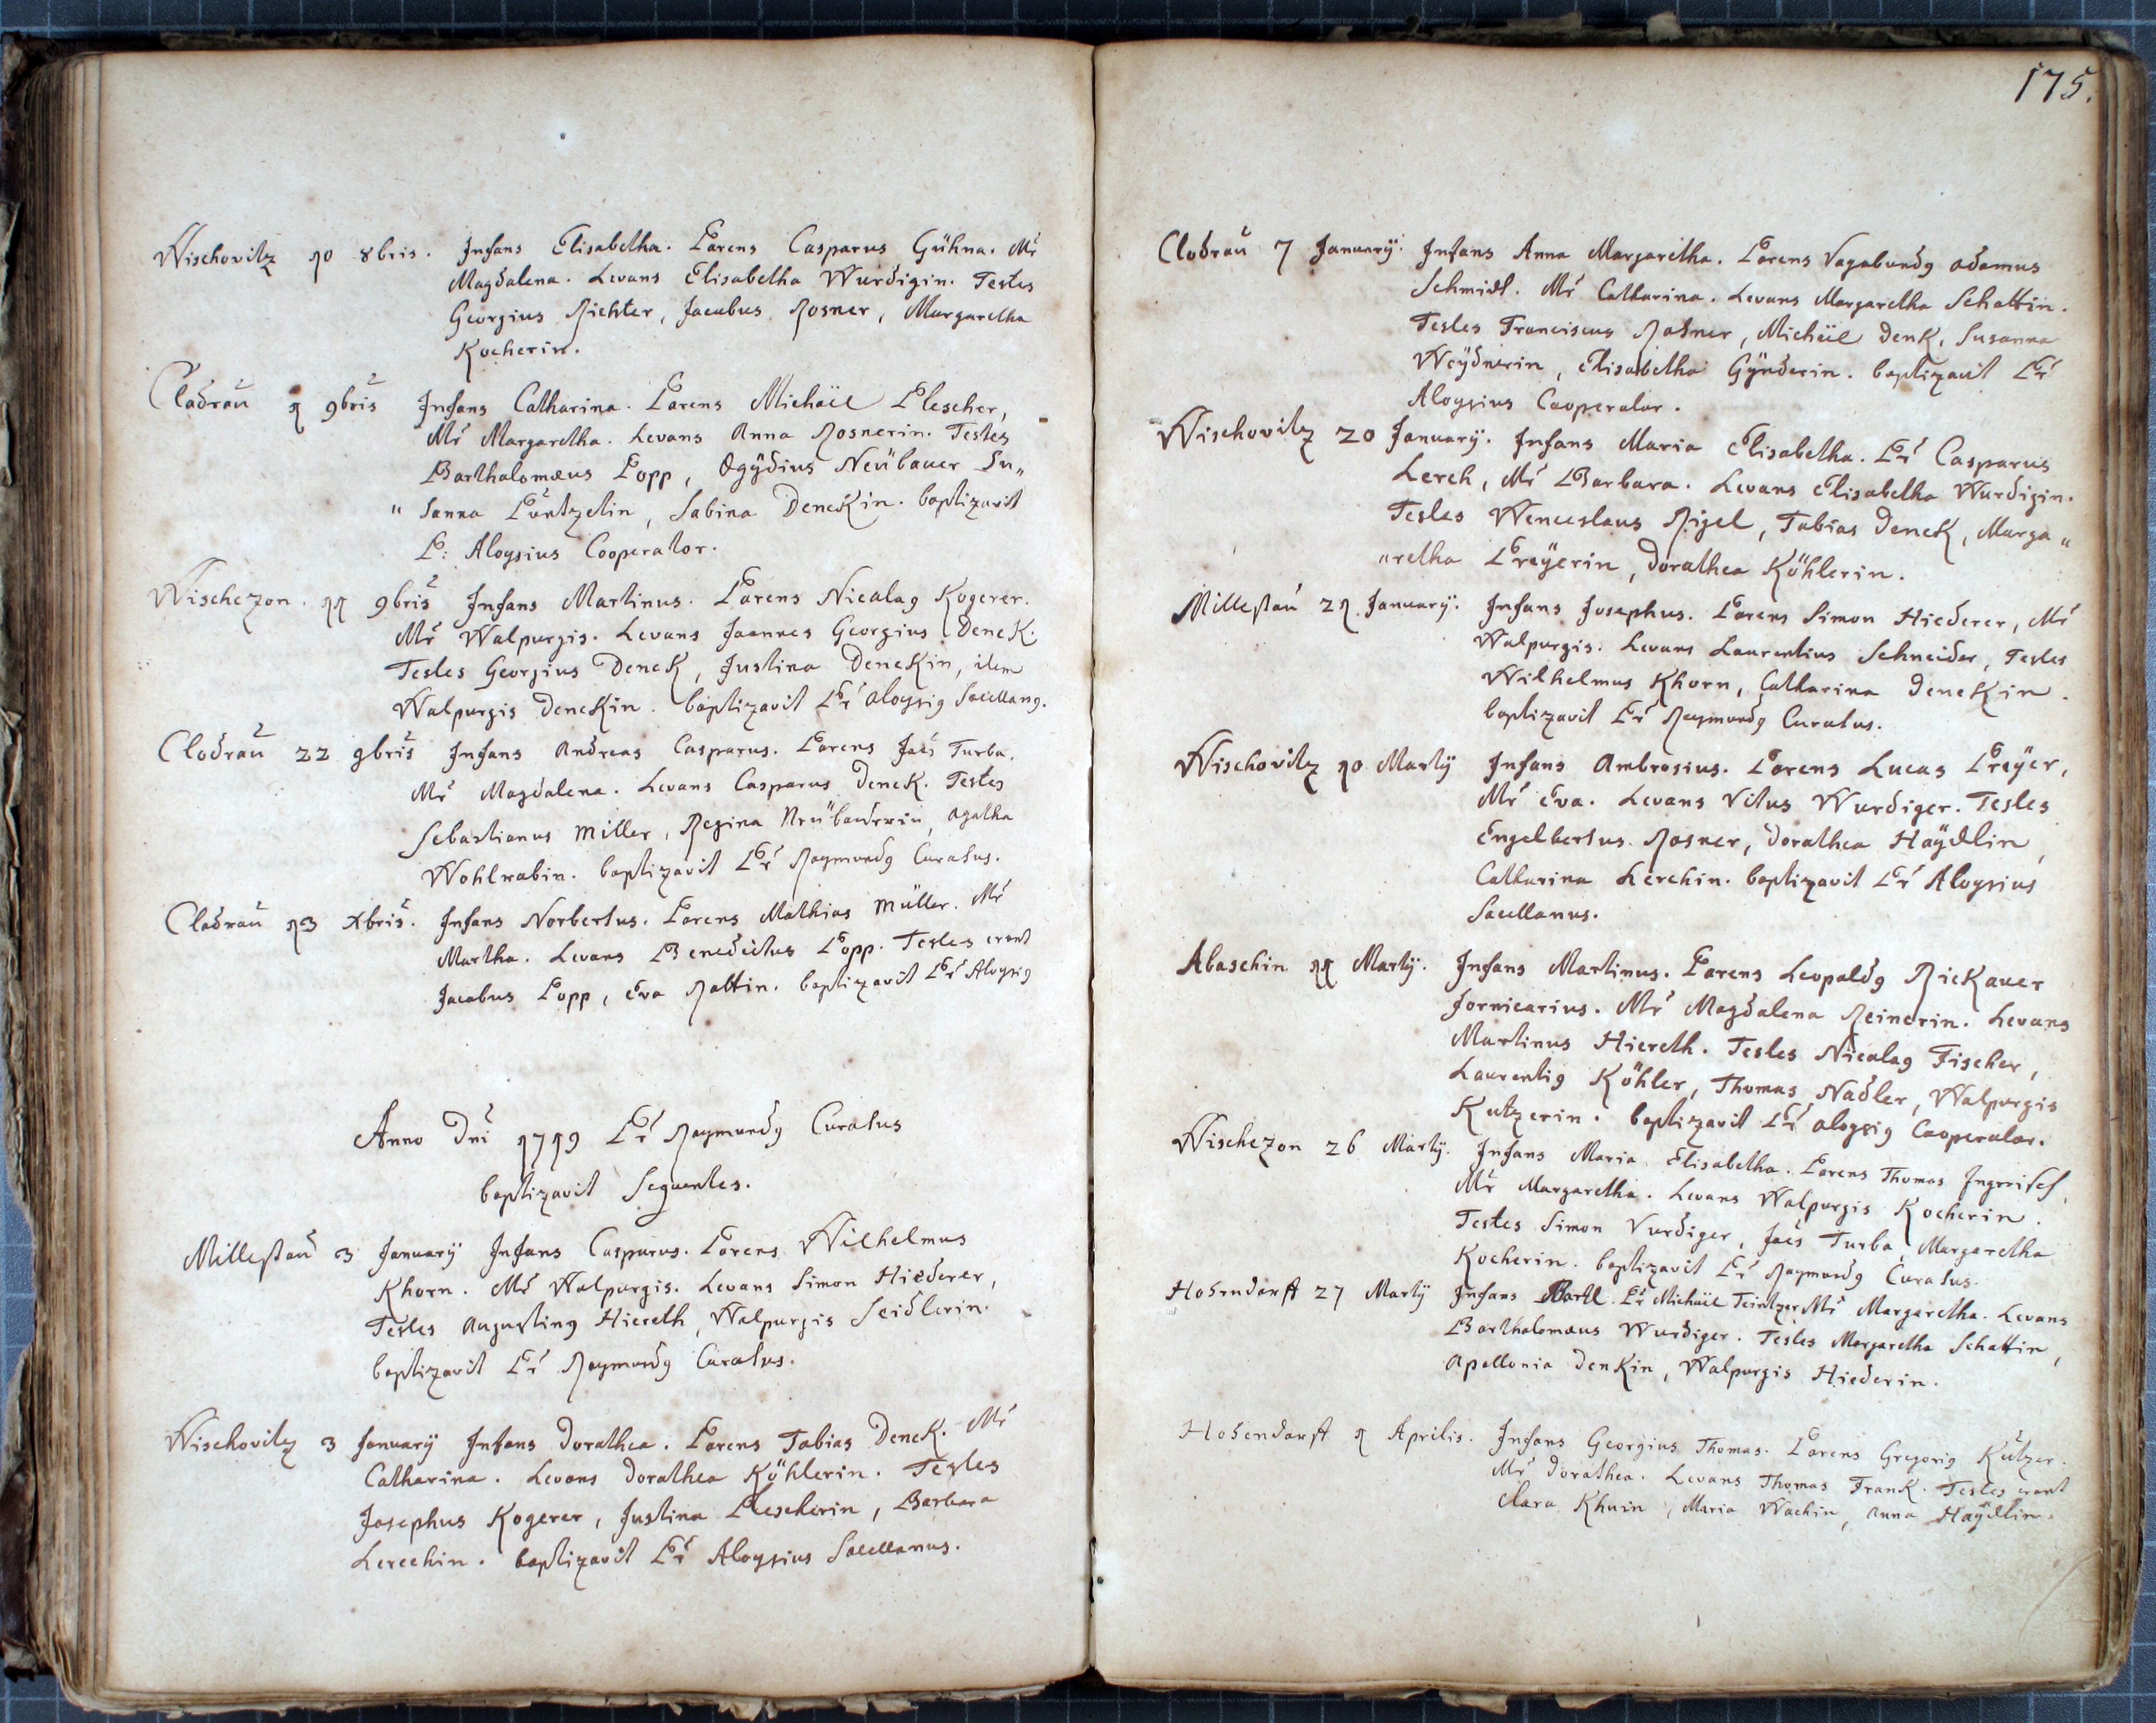 Wischovitz 10 8bris. Infans Elisabetha. Parens Casparus Gühna. Mr
Magdalena. Levans Elisabetha Wurdigin. Testes
Georgius Richter, Jacobus Rosner, Margaretha
Kocherin.
Cladrau 1 9bris Infans Catharina. Parens Michäel Plescher,
Mr Margaretha. Levans Anna Rosnerin. Testes
Bartholomæus Popp, Ægÿdius Neübauer Su„
„sanna Püntzelin, Sabina Denekin. baptizavit
P: Aloysius Cooperator.
Wischezon. 11 9bris Infans Martinus. Parens Nicolag Kogerer.
Mr Walpurgis. Levans Joannes Georgius Denek.
Testes Georgius Denek, Justina Denekin, item
Walpurgis Denekin. baptizavit Pr Aloysig Sacellang.
Clodrau 22 9bris Infans Andreas Casparus. Parens Jaes Turba.
Mr Magdalena. Levans Casparus Denek. Testes
Sebastianus Miller, Regina Neübauerin, Agatha
Wohlrabin. baptizavit Pr Raymundg Curatus.
Cladrau 13 Xbris. Infans Norbertus. Parens Mathias Müller. Mr
Martha. Levans Benedictus Popp. Testes erant
Jacobus Popp, Eva Rattin. baptizavit Pr Aloysig
Anno Dni 1719 Pr Raymundg Curatus
baptizavit Sequentes.
Millestau 3 January Infans Casparus. Parens Wilhelmus
Khorn. Mr Walpurgis. Levans Simon Hiederer,
Testes Augusting Hiereth, Walpurgis Seidlerin.
baptizavit Pr Raymundg Curatus.
Wischovitz 3 January Infans Dorathea. Parens Tobias Denek. Mr
Catharina. Levans Dorathea Köhlerin. Testes
Josephus Kogerer, Justina Plescherin, Barbara
Lerechin. baptizavit Pr Aloysius Sacellanus.
175.
Clodrau 7 January. Infans Anna Margaretha. Parens Vagabundg Adamus
Schmidt. Mr Catharina. Levans Margaretha Schattin.
Testes Franciscus Rosner, Michäel Denk, Susanna
Weÿdnerin, Elisabetha Gÿnderin. baptizavit Pr
Aloysius Cooperator.
Wischovitz 20 January. Infans Maria Elisabetha. Pr Casparus
Lerch, Mr Barbara. Levans Elisabetha Wurdigin.
Testes Wenceslaus Rigel, Tobias Denek, Marga„
„retha Preÿerin, Dorathea Köhlerin.
Millestau 21. January. Infans Josephus. Parens Simon Hiederer, Mr
Walpurgis. Levans Laurentius Schneider, Testes
Wilhelmus Khorn, Catharina Denekin.
baptizavit Pr Raymundg Curatus.
Wischovitz 10 Marty Infans Ambrosius. Parens Lucas Preÿer,
Mr Eva. Levans Vitus Wurdiger. Testes
Engelbertus Rosner, Dorathea Haÿdlin,
Catharina Lerchin. baptizavit Pr Aloysius
Sacellanus.
Abaschin 11 Marty. Infans Martinus. Parens Leopoldg Rickauer
fornicarius. Mr Magdalena Reinerin. Levans
Martinus Hiereth. Testes Nicolag Fischer,
Laurentig Köhler, Thomas Nadler, Walpurgis
Kutzerin. baptizavit Pr Aloysig Cooperator.
Wischezon 26 Marty. Infans Maria Elisabetha. Parens Thomas Ingrrisch,
Mr Margaretha. Levans Walpurgis Kocherin.
Testes Simon Vurdiger, Jaes Turba, Margaretha
Kocherin. baptizavit Pr Raymundg Curatus.
Hosendorft 27 Marty Infans Bartl. Pr Michäel Teintzer Mr Margaretha. Levans
Bartholomæus Wurdiger. Testes Margaretha Schattin,
Apollonia Denkin, Walpurgis Hiederin.
Hosendorft 1 Aprilis. Infans Georgius Thomas. Parens Gregorig Kützer.
Mr Dorathea. Levans Thomas Frank. Testes erant
Clara Khurn, Maria Wachin, Anna Haÿdlin.